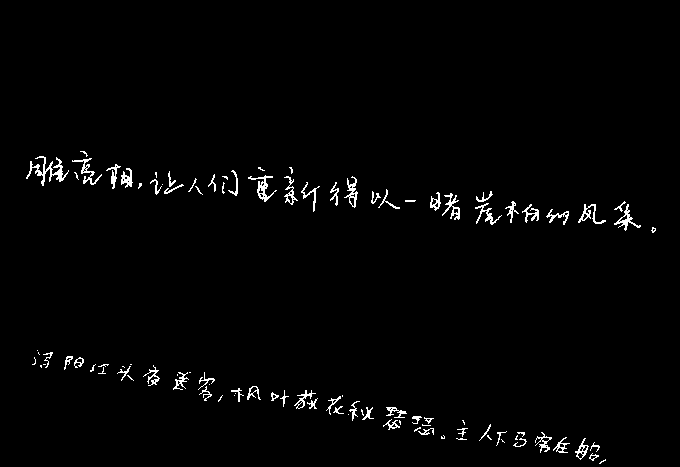 雕亮相,让人们重新得以一睹崖柏的风采。
浔阳江头夜送客,枫叶荻花秋瑟瑟。主人下马客在船,